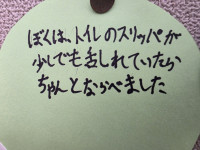 ぼくは、トイレのスリッパが
少しでも乱れていたら
ちゃんとならべました